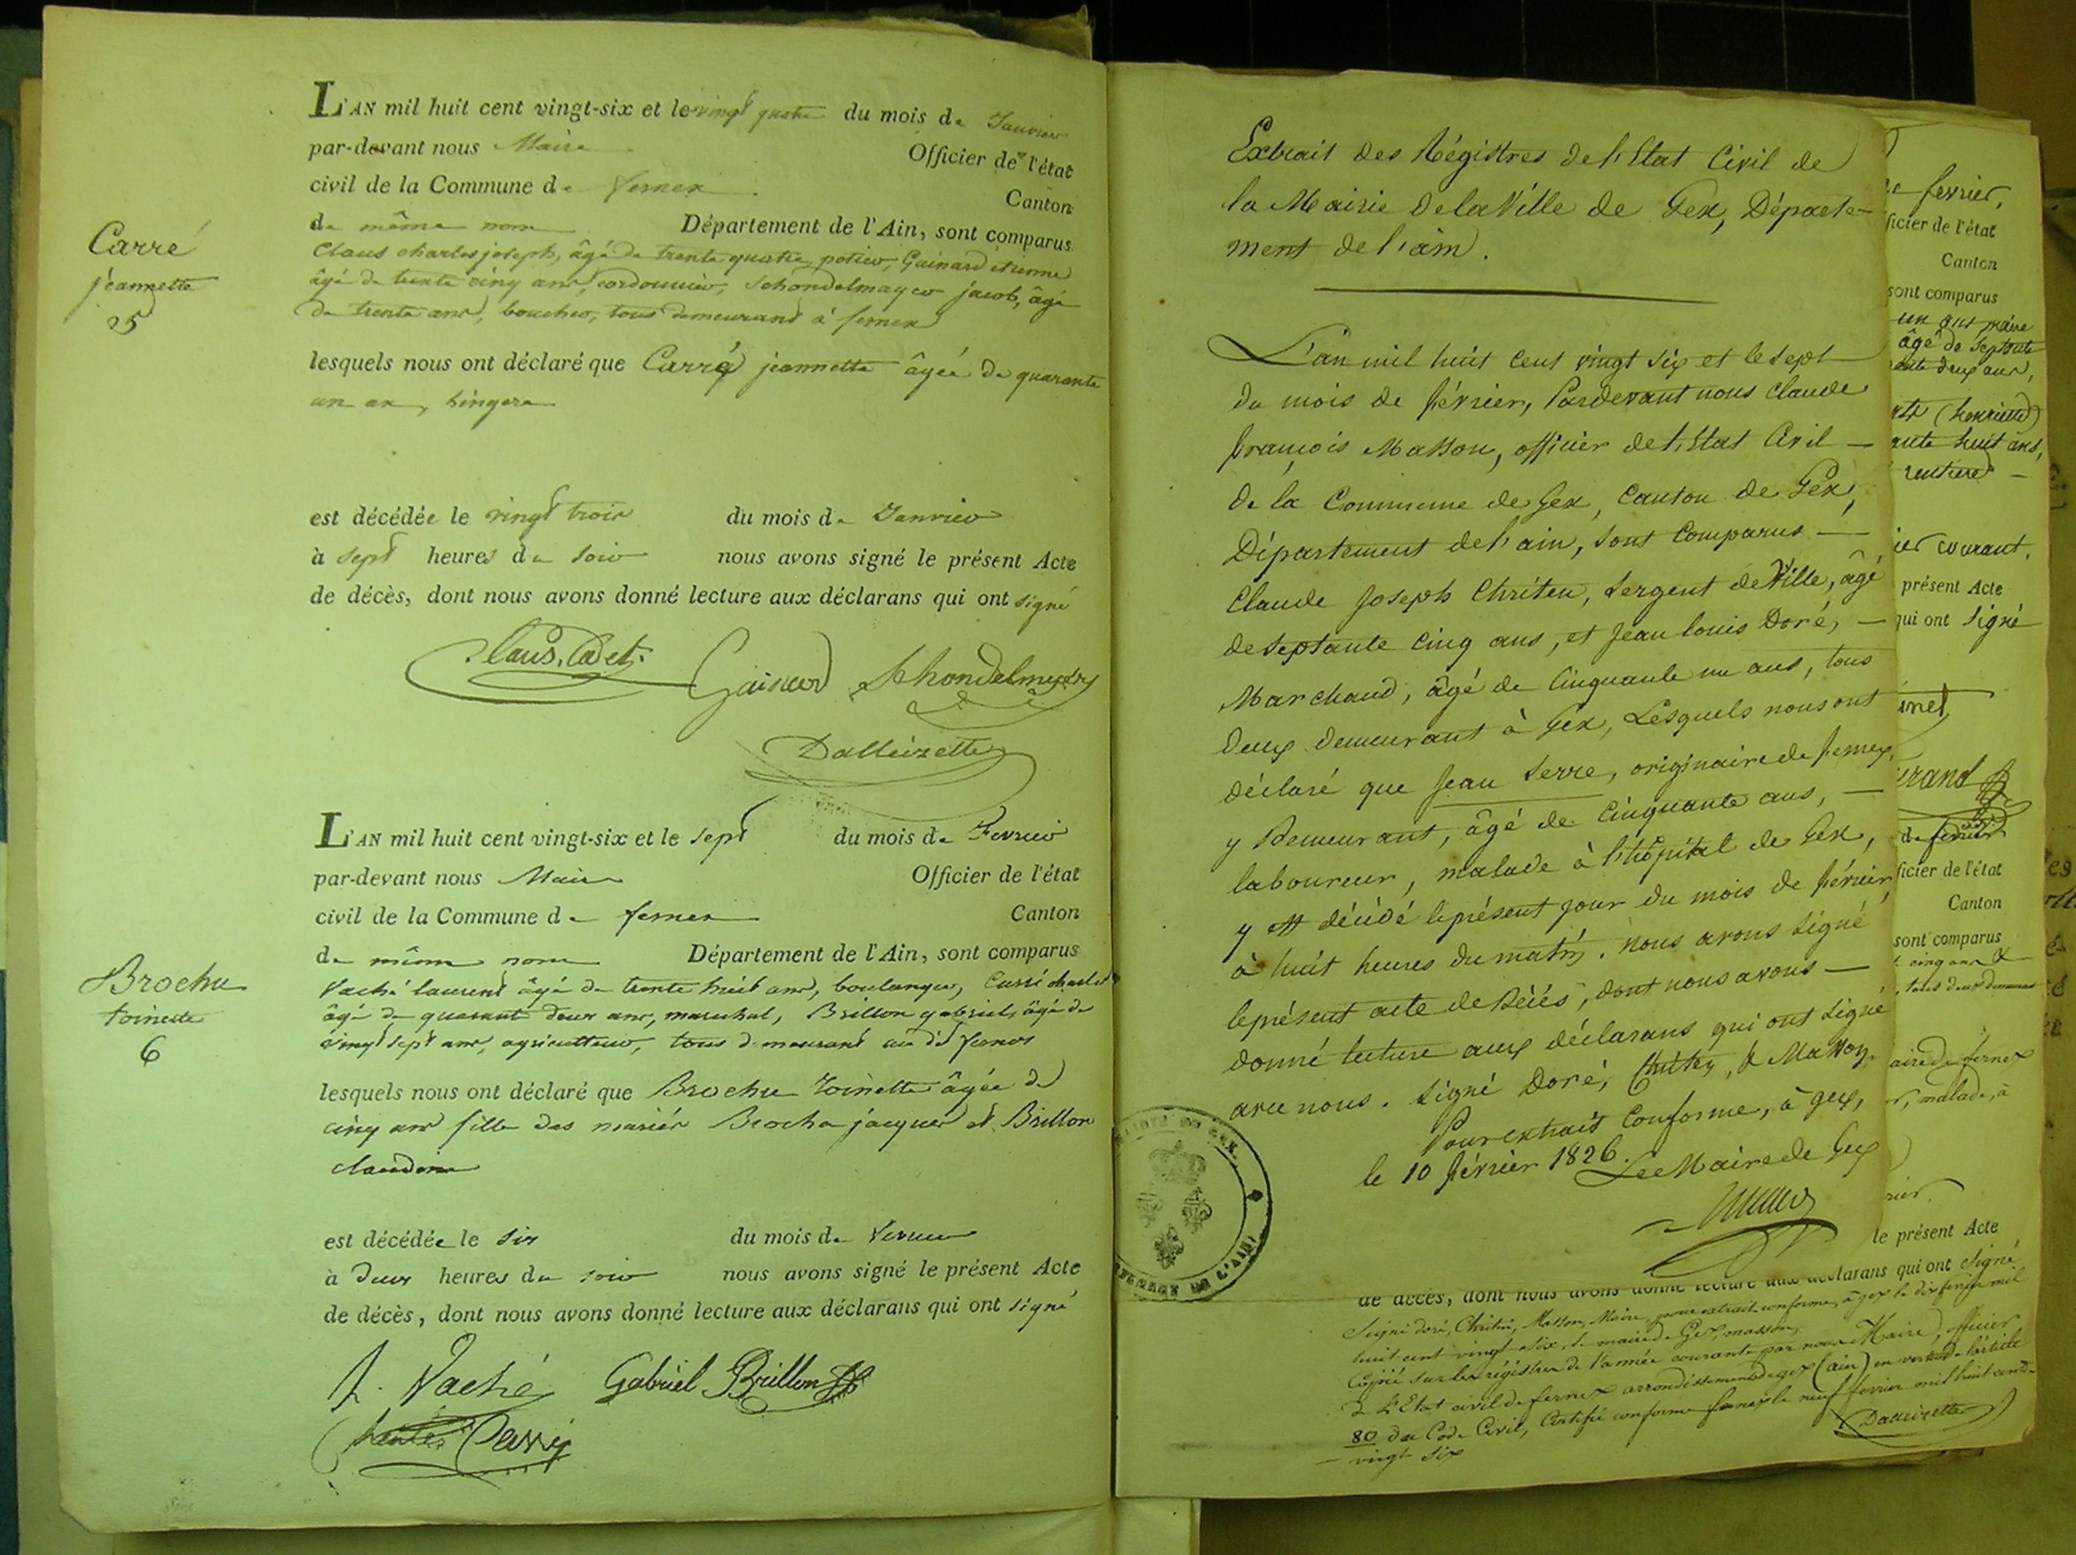 L'AN mil huit cent vingt-six et le vingt quatre du mois de Janvier
par-devant nous Maire Officier de l'état
civil de la Commune de fernex Canton
de même nom Département de l'Ain, sont comparus
Claus charles joseph, âgé de trente quatre, potier, Gainard étienne
âgé de trente cinq ans, cordonnier, Schondelmayer jacob, âgé
de trente ans, boucher, tous demeurans à fernex
Carré
jeannette
5
lesquels nous ont déclaré que Carré jeannette âgée de quarante
un an, lingere
est décédée le vingt trois du mois de Janvier
à sept heures du soir nous avons signé le présent Acte
de décès, dont nous avons donné lecture aux déclarans qui ont signé
Claus. Cadet. Gainard Schondelmeyer
Dalleizette
L'AN mil huit cent vingt-six et le sept du mois de Fevrier
par-devant nous Maire Officier de l'état
civil de la Commune de fernex Canton
de même nom Département de l'Ain, sont comparus
Vaché laurent âgé de trente huit ans, boulanger, charles
âgé de quarante deux ans, marechal, Brillon gabriel, âgé de
vingt sept ans, agriculteur, tous demeurans au dit fernex
Brochu
toinette
6
lesquels nous ont déclaré que Brochu Toinette âgée de
cinq ans fille des mariés Brochu jacques et Brillon
claudine
est décédée le six du mois de fevrier
à deux heures du soir nous avons signé le présent Acte
de décès, dont nous avons donné lecture aux déclarans qui ont signé
L. Vaché Gabriel Brillon
Extrait des Régistres de l'Etat Civil de
la Mairie de la Ville de Gex, Départe-
ment de l'ain.
L'an mil huit cent vingt six et le sept
du mois de février, Pardevant nous Claude
françois Masson, officier de l'Etat Civil
de la Commune de Gex, Canton de Gex,
Département de l'ain, sont comparus
Claude Joseph Chriten, Sergent de Ville, âgé
de septante cinq ans, et Jean louis Doré,
Marchand, âgé de Cinquante un ans, tous
deux demeurant à Gex, Lesquels nous ont
déclaré que Jean Serre, originaire de fernex,
y Demeurant, âgé de Cinquante ans,
laboureur, malade à l'hôpital de Gex,
y est décédé le présent jour du mois de février
à huit heures du matin. nous avons signé
le présent acte de Décès, dont nous avons
donné lecture aux déclarans qui ont signé
avec nous. Signé Doré, Chriten, & Masson.
Pour extrait Conforme, à gex,
le 10 février 1826. Le Maire de Gex
de décès, dont nous avons donné lecture aux déclarans qui ont signé
Signé doré, Chriten, Masson, Maire, pour extrait conforme, à gex le dix fevrier mil
huit cent vingt six, le maire de Gex, masson,
Copié sur les régistres de l'année courante par nous Maire, officier
de l'Etat civil de fernex arrondissement de gex (ain) en vertu de l'article
80 du Code Civil, Certifié conforme fernex le neuf fevrier mil huit cent
vingt six
Dalleizette
fevrier,
ficier de l'état
Canton
sont comparus
un ans maire
âgé de septante
deux ans,
(henriette)
huit ans,
rentiere
courant.
présent Acte
qui ont signé
de fevrier
ficier de l'état
Canton
sont comparus
cinq ans &
tous deux
de fernex
malade, à
le présent Acte